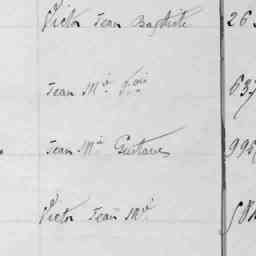 Victor Jean Baptiste 26
Jean Mie 637
Jean Mie Gustave 995
Victor Jean Mie